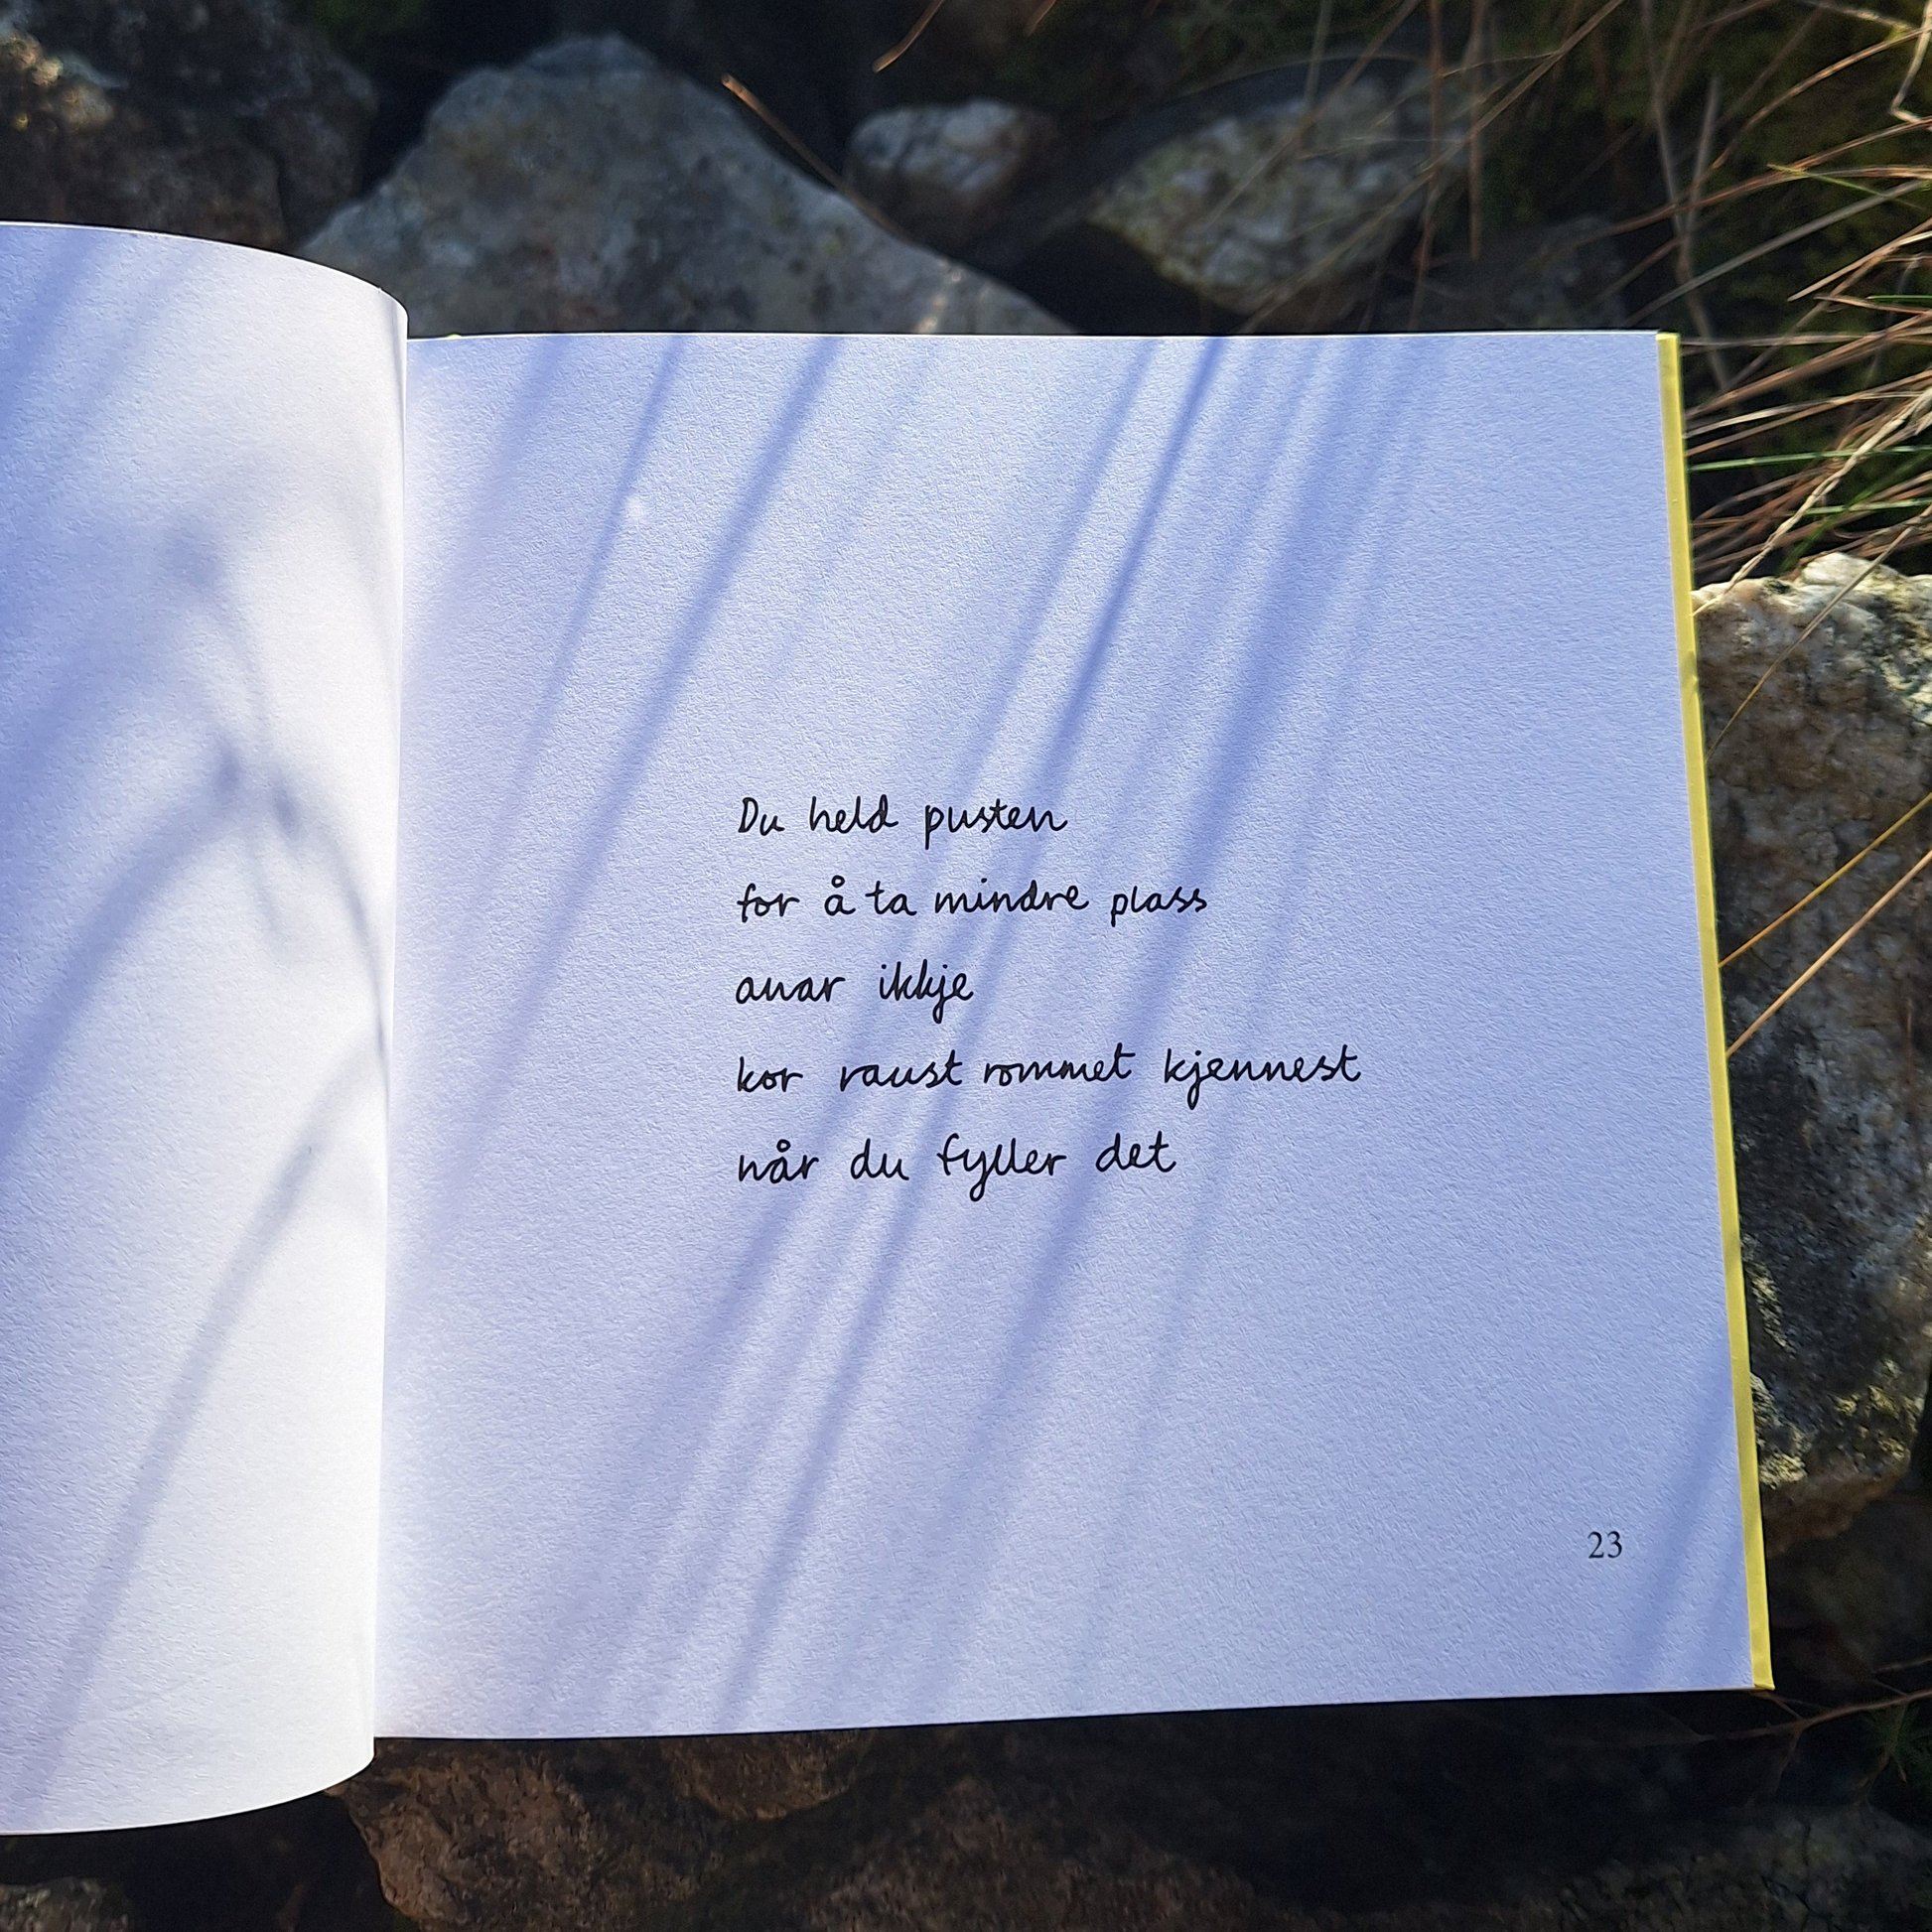 Du held pusten
for å ta mindre plass
anar ikkje
kor raust rommet kjennest
når du fyller det
23